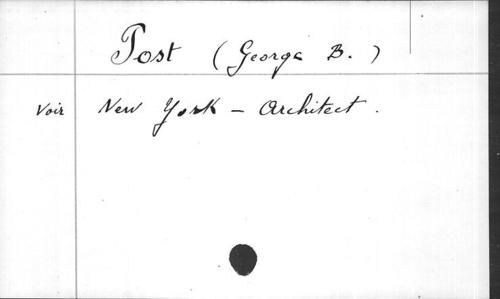 Post (George B.)
Voir New York - Architect.